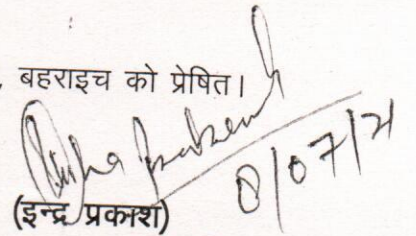 , बहराइच को प्रेषित।
8/07/21
(इन्द्र प्रकाश)